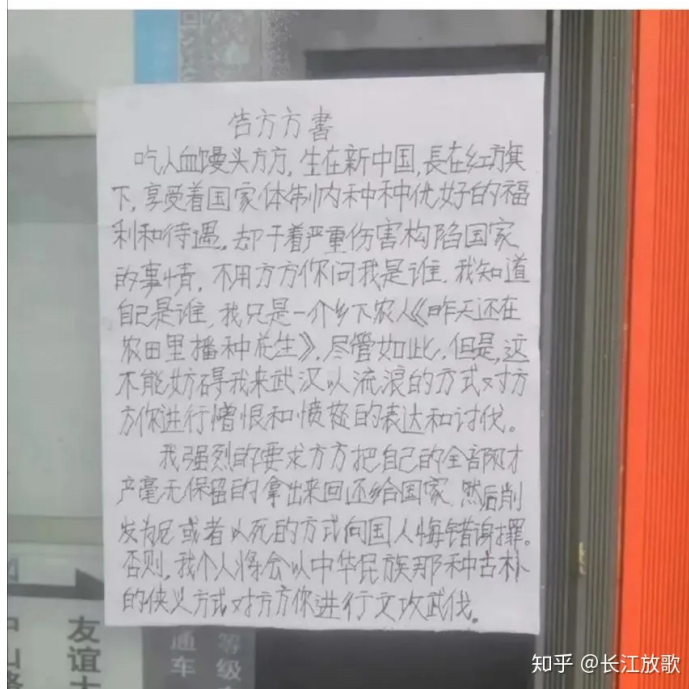 告方方書
吃人血馒头方方,生在新中国,長在红旗
下,享受着国家体制内种种优好的福
利和待遇,却干着严重伤害构陷国家
的事情,不用方方你问我是谁,我知道
自己是谁,我只是一个乡下农人《昨天还在
农田里播种花生》,尽管如此,但是,这
不能妨碍我来武汉以流浪的方式对方
方你进行憎恨和愤怒的表达和讨伐。
我强烈的要求方方把自己的全部财
产毫无保留的拿出来回还给国家,然后削
发为尼或者以死的方式向国人悔错谢罪。
否则,我个人将会以中华民族那种古朴
的侠义方式对方方你进行文攻武伐。
友谊大
通车
等级
知乎 @长江放歌